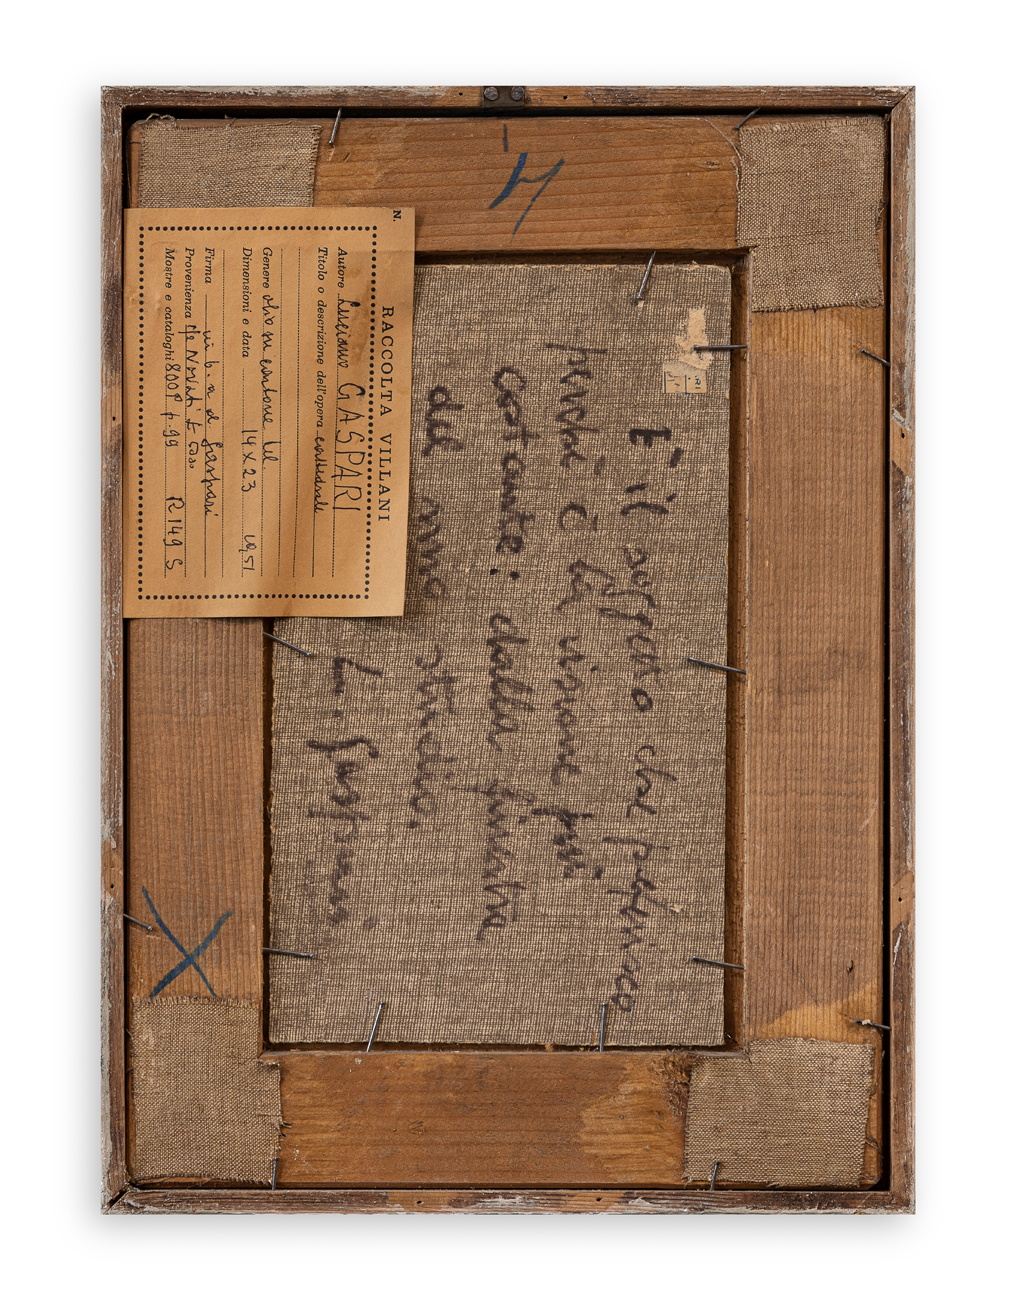 N.
RACCOLTA VILLANI
Autore Luciano GASPARI
Titolo o descrizione dell'opera cattedrale
Genere olio su cartone tel.
Dimensioni e data 14 x 23 1951
Firma Gaspari
Provenienza Novati
Mostre e cataloghi 800P p. 99 R 149 S
È il soggetto che preferisco
perchè è la visione più
costante: dalla finestra
del mio studio.
Lu. Gaspari